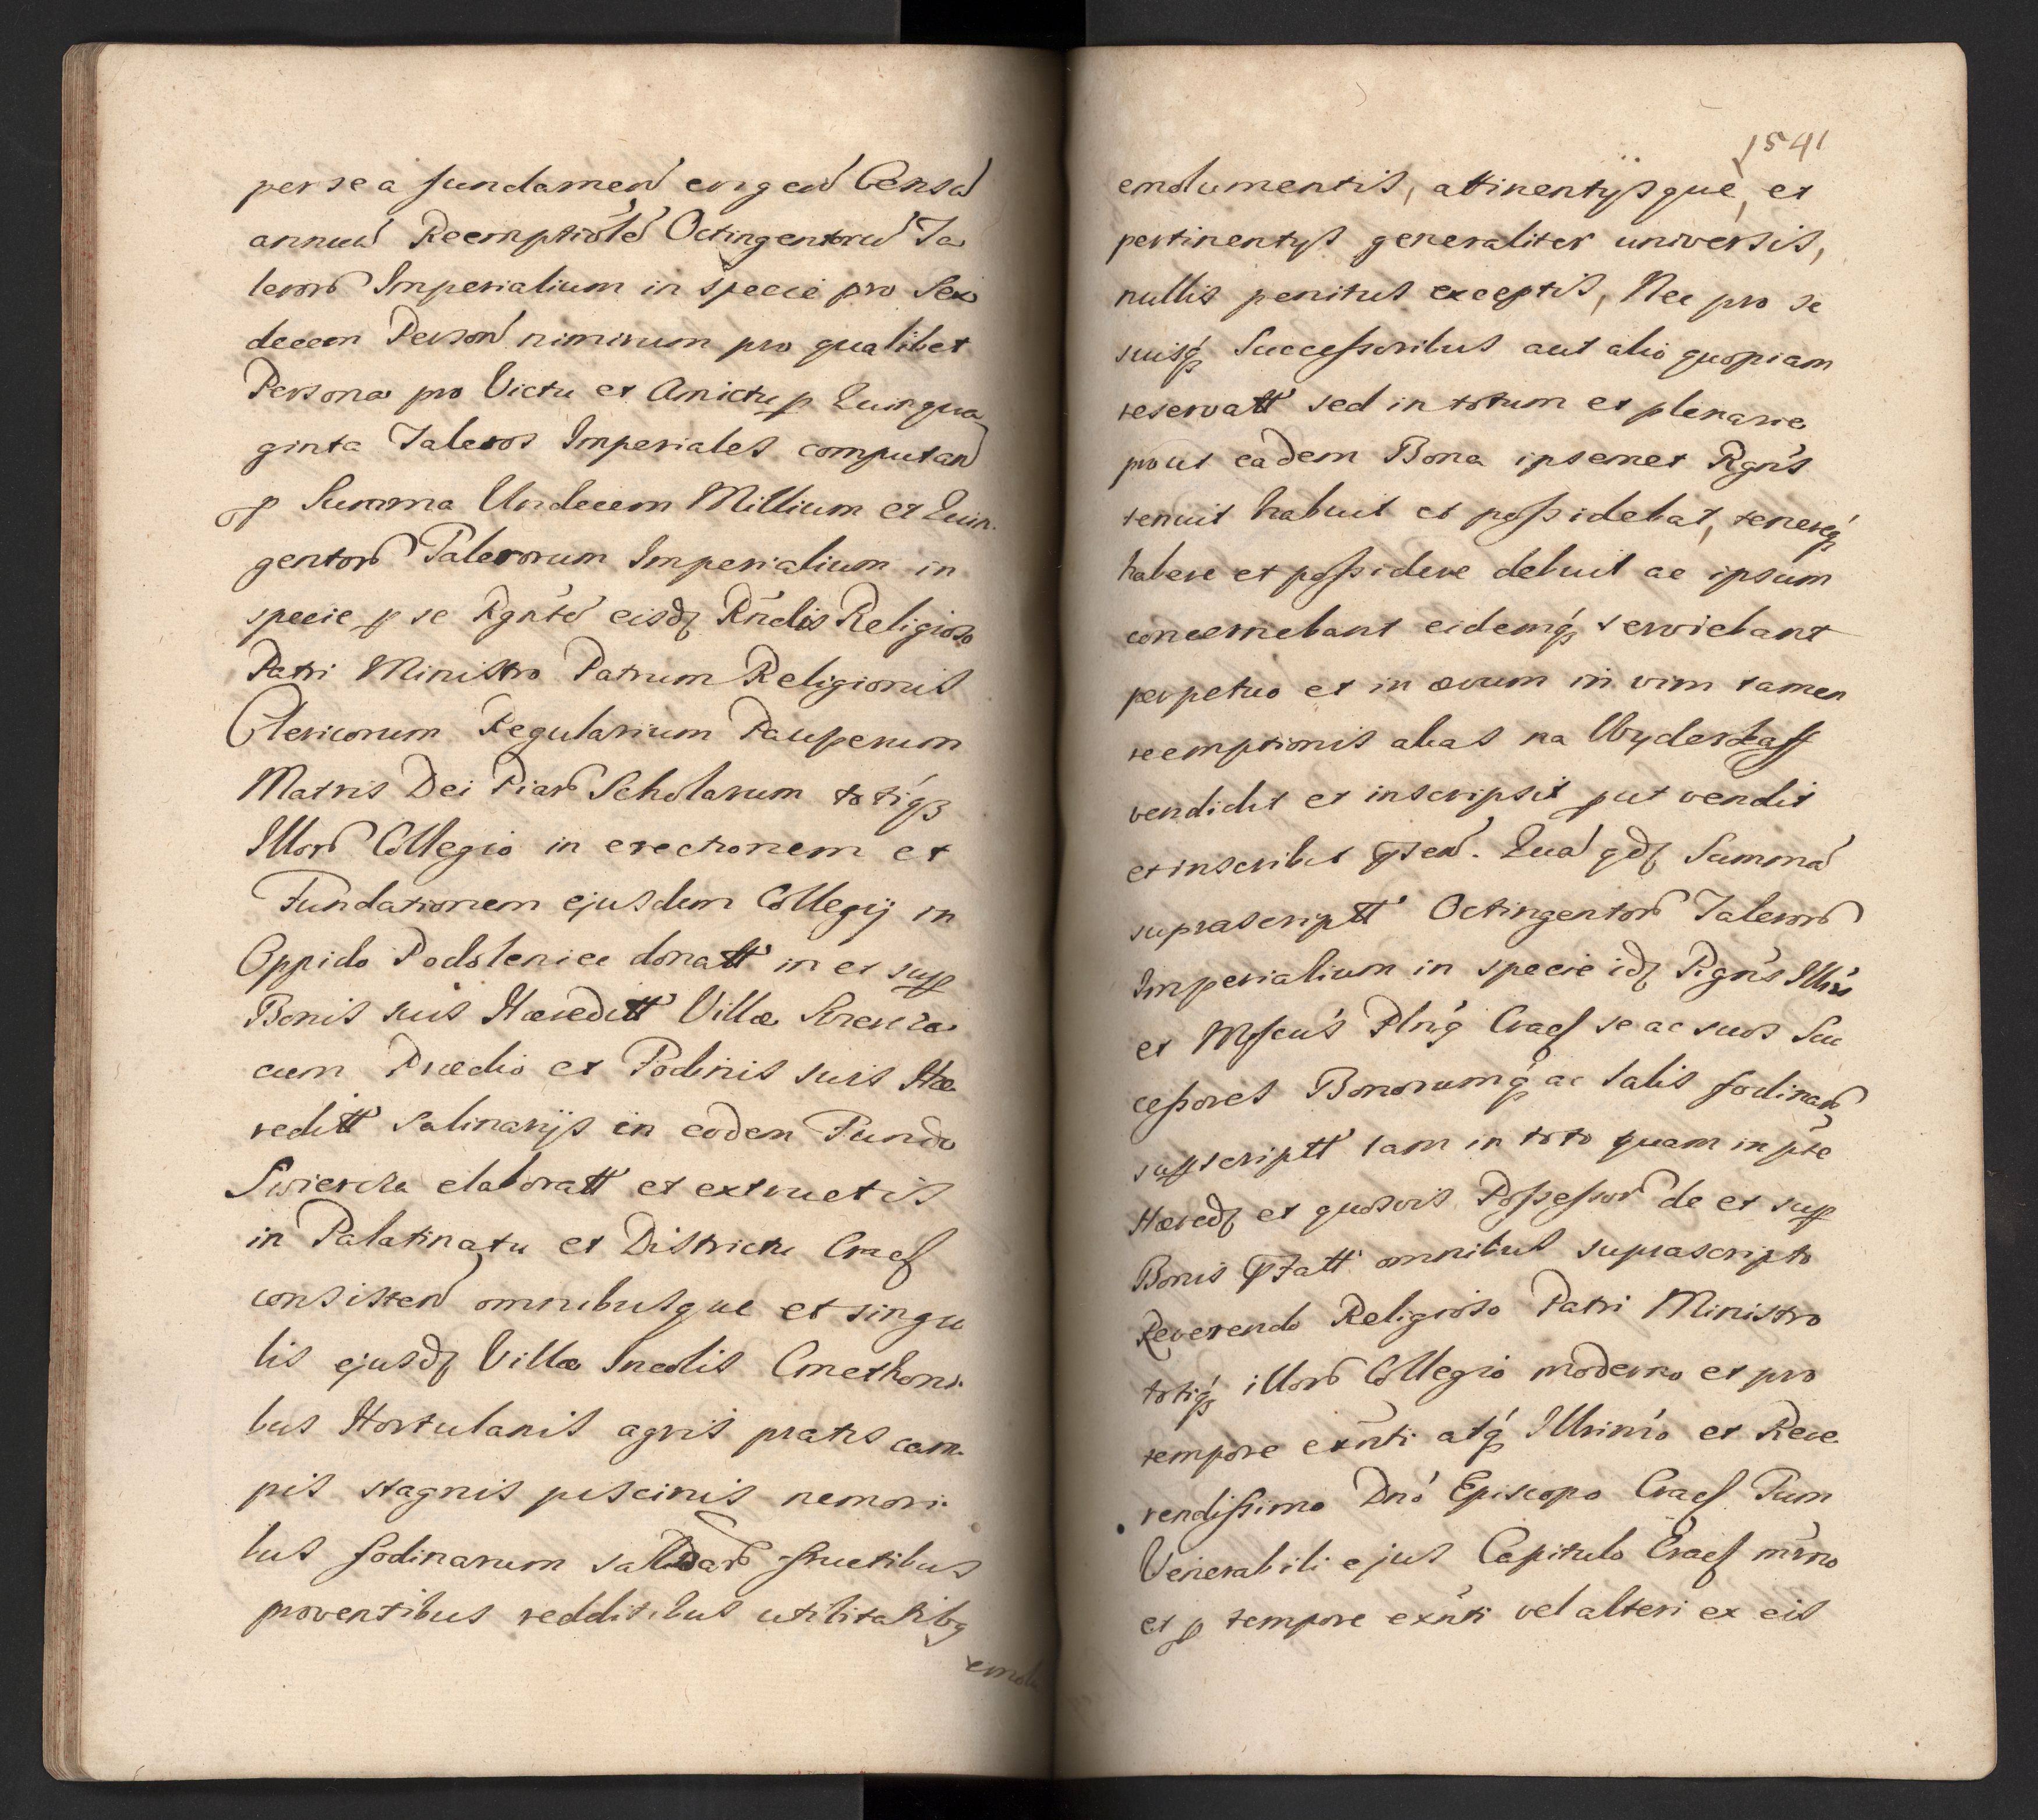 per se a fundamen erigen Censu
annuu Reemptiõle Octingentoru Ta
leror Imperialium in specie pro Sex
decem Person nimirum pro qualibet
Persona pro Victu et Amictu p Quinqua
ginta Taleros Imperiales computan
p Summa Undecem Millium et Quin.
gentor Talerorum Imperialium in
specie p se Rgnte eisdz Rndis Religioso
Patri Ministro Patrum Religionis
Clericorum Regularium Pauperum
Matris Dei Piar Scholarum totiqz
Illor Collegio in erectionem et
Fundationem ejusdem Collegij in
Oppido Podolenice donatt in et sup
Bonis suis Hæreditt Villæ
cum Prædio et Fodinis suis Hæ
reditt salinarijs in eodem Fundo
Swiercza elaboratt et extructis
in Palatinatu et Districtu Cracf
consisten omnibusque et singu
lis ejusdz Villæ Incolis Cmethoni.
bus Hortulanis agris pratis cam.
pis stagnis piscinis nemori.
bus fodinarum fructibus
proventibus redditibus utilitatibq
emolu
1541
emolumentis, attinentijsque, et
pertinentys generaliter universis,
nullis penitus exceptis, Nec pro se
suisqz Successoribus aut alio quopiam
reservatt sed in totum et plenarie
prout eadem Bona ipsemet Rgns
tenuit habuit et possidebat, tenereqz
habere et possidere debuit ac ipsum
concernebant eidemqz serviebant
perpetuo et in ævum in vim tamen
reemptionis alias na Wyderkaff
vendidit et inscripsit put vendit
et inscribit psen. Qua qdz Summa
suprascriptt Octingentor Taleror
Imperialium in specie idz Rgns Illris
et Mgfcus Plnq Cracf se ac suos Suc
cessores Bonorumqz ac Salis fodinar
supscriptt tam in toto quam in pte
Hæredz et quosvis Possessor de et sup
Bonis pfatt omnibus suprascripto
Reverendo Religioso Patri Ministro
totiqz illor Collegio moderno et pro
tempore exnti atqz Illrimo et Reve
rendissimo Dno Episcopo Cracf Tum
Venerabili ejus Capitulo Cracf mrno
et p tempore exnti vel alteri ex eis